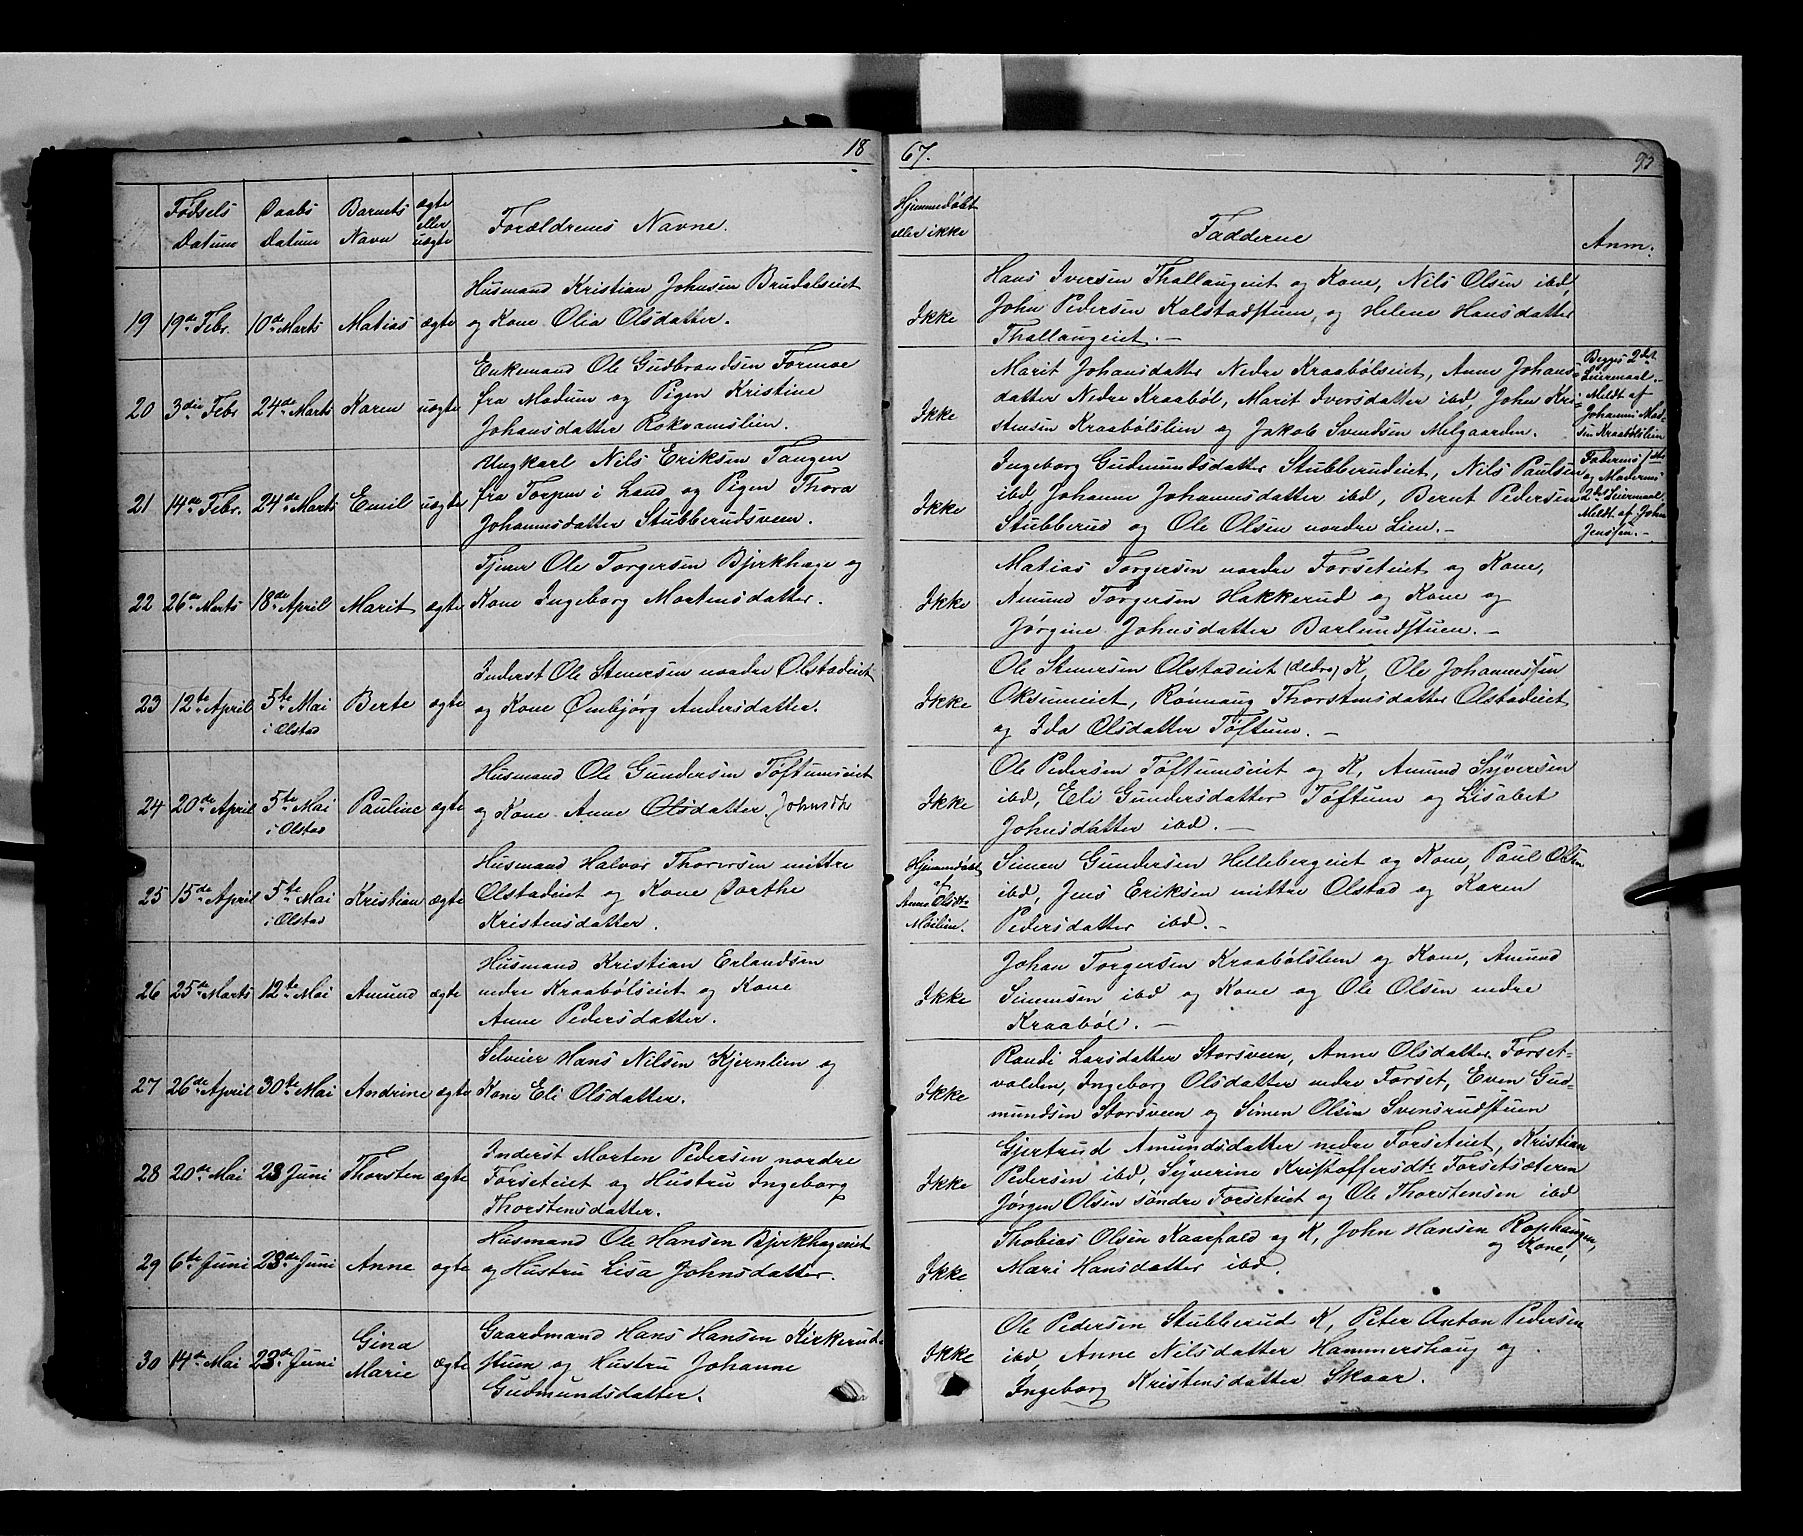 18
67.
93
Fødsels Datum
Daabs Datum
Barnets Navn
ægte eller uægte
Forældrenes Navne.
Hjemmedøbt eller ikke
Fadderne
Anm.
19 19de Febr. 10de Marts Matias ægte
Husmand Kristian Johnsen Brudalseiet
og Kone Olia Olsdatter.
Ikke
Hans Iversen Thallaugeiet og Kone, Nils Olsen ibd,
John Pedersen Kalstadstuen, og Helene Hansdatter
Thallaugeiet. –
20 3die Febr 24de Marts Karen uægte
Enkemand Ole Gudbrandsen Formoe
fra Modum og Pigen Kristine
Johansdatter Rokvamslien.
Ikke
Marit Johansdatter Nedre Kraabølseiet, Anne Johans=
datter Nedre Kraabøl, Marit Iversdatter ibd, John Kri=
stensen Kraabølslien og Jakob Svendsen Melgaarden.
Begges 2det
Leiermaal.
Meldt af
Johannes Mad=
sen Kraabølslien
21 14de Febr. 24de Marts Emil uægte
Ungkarl Nils Eriksen Tangen
fra Torpen i Land og Pigen Thora
Johannesdatter Stubberudsveen.
Ikke
Ingeborg Gudmundsdatter Stubberudeiet, Nils Paulsen
ibd, Johanne Johannesdatter ibd, Bernt Pedersen
Stubberud og Ole Olsen nordre Lien. –
Faderens 1ste
og Moderens
2det Leiermaal.
Meldt af John
Jenssen. –
22 26de Marts 18de April Marit ægte
Tjener Ole Torgersen Bjerkhage og
Kone Ingeborg Mortensdatter.
Ikke
Matias Torgersen nordre Forseteiet og Kone,
Amund Torgersen Hakkerud og Kone og
Jørgine Johnsdatter Barlundstuen. –
23 12te April 5te Mai i Olstad Berte ægte
Inderst Ole Stenersen nordre Olstadeiet
og Kone Ønbjørg Andersdatter.
Ikke
Ole Stenersen Olstadeiet (ældre) K, Ole Johannessen
Oksumeiet, Rønnaug Thorstensdatter Olstadeiet
og Ida Olsdatter Tøftum. –
24 20de April 5te Mai i Olstad Pauline ægte
Husmand Ole Gundersen Tøftumseiet
og Kone Anne Olsdatter. Johnsdtr
Ikke
Ole Pedersen Tøftumseiet og K, Amund Syversen
ibd, Eli Gundersdatter Tøftum og Lisabet
Johnsdatter ibd. –
25 15de April 5te Mai i Olstad Kristian ægte
Husmand Halvor Thoresen mittre
Olstadeiet og Kone Dorthe
Kristensdatter.
Hjemmedøbt
af
Anne Olsdtr
Moilien.
Simen Gundersen Hellebergeiet og Kone, Paul Olsen
ibd, Jens Eriksen mittre Olstad og Karen
Pedersdatter ibd. –
26 25de Marts 12te Mai Amund ægte
Husmand Kristian Erlandsen
nedre Kraabølseiet og Kone
Anne Pedersdatter.
Ikke
Johan Torgersen Kraabølslien og Kone, Amund
Simensen ibd og Kone og Ole Olsen nedre
Kraabøl. –
27 26de April 30te Mai Andrine ægte
Selveier Hans Nilsen Kjernlien og
Kone Eli Olsdatter.
Ikke
Randi Larsdatter Storsveen, Anne Olsdatter Forset-
volden, Ingeborg Olsdatter nedre Forset, Even Gud=
mundsen Storsveen og Simen Olsen Svensrudstuen
28 20de Mai 23 Juni Thorsten ægte
Inderst Morten Pedersen nordre
Forseteiet og Hustru Ingeborg
Thorstensdatter.
Ikke
Gjertrud Amundsdatter nedre Forseteiet, Kristian
Pedersen ibd, Syverine Kristoffersdtr Forsetsæteren
Jørgen Olsen søndre Forseteiet og Ole Thorstensen ibd
29 6te Juni 23de Juni Anne ægte
Husmand Ole Hansen Bjerkhageeiet
og Hustru Lisa Johnsdatter.
Ikke
Thobias Olsen Kaarfald og K, John Hansen Rophaugen,
og Kone,
Mari Hansdatter ibd.
30 14de Mai 23de Juni Gina Marie ægte
Gaardmand Hans Hansen Kirkerud=
stuen og Hustru Johanne
Gudmundsdatter.
Ikke
Ole Pedersen Stubberud K, Peter Anton Pedersen
ibd, Anne Nilsdatter Hammershaug og
Ingeborg Kristensdatter Skaar.